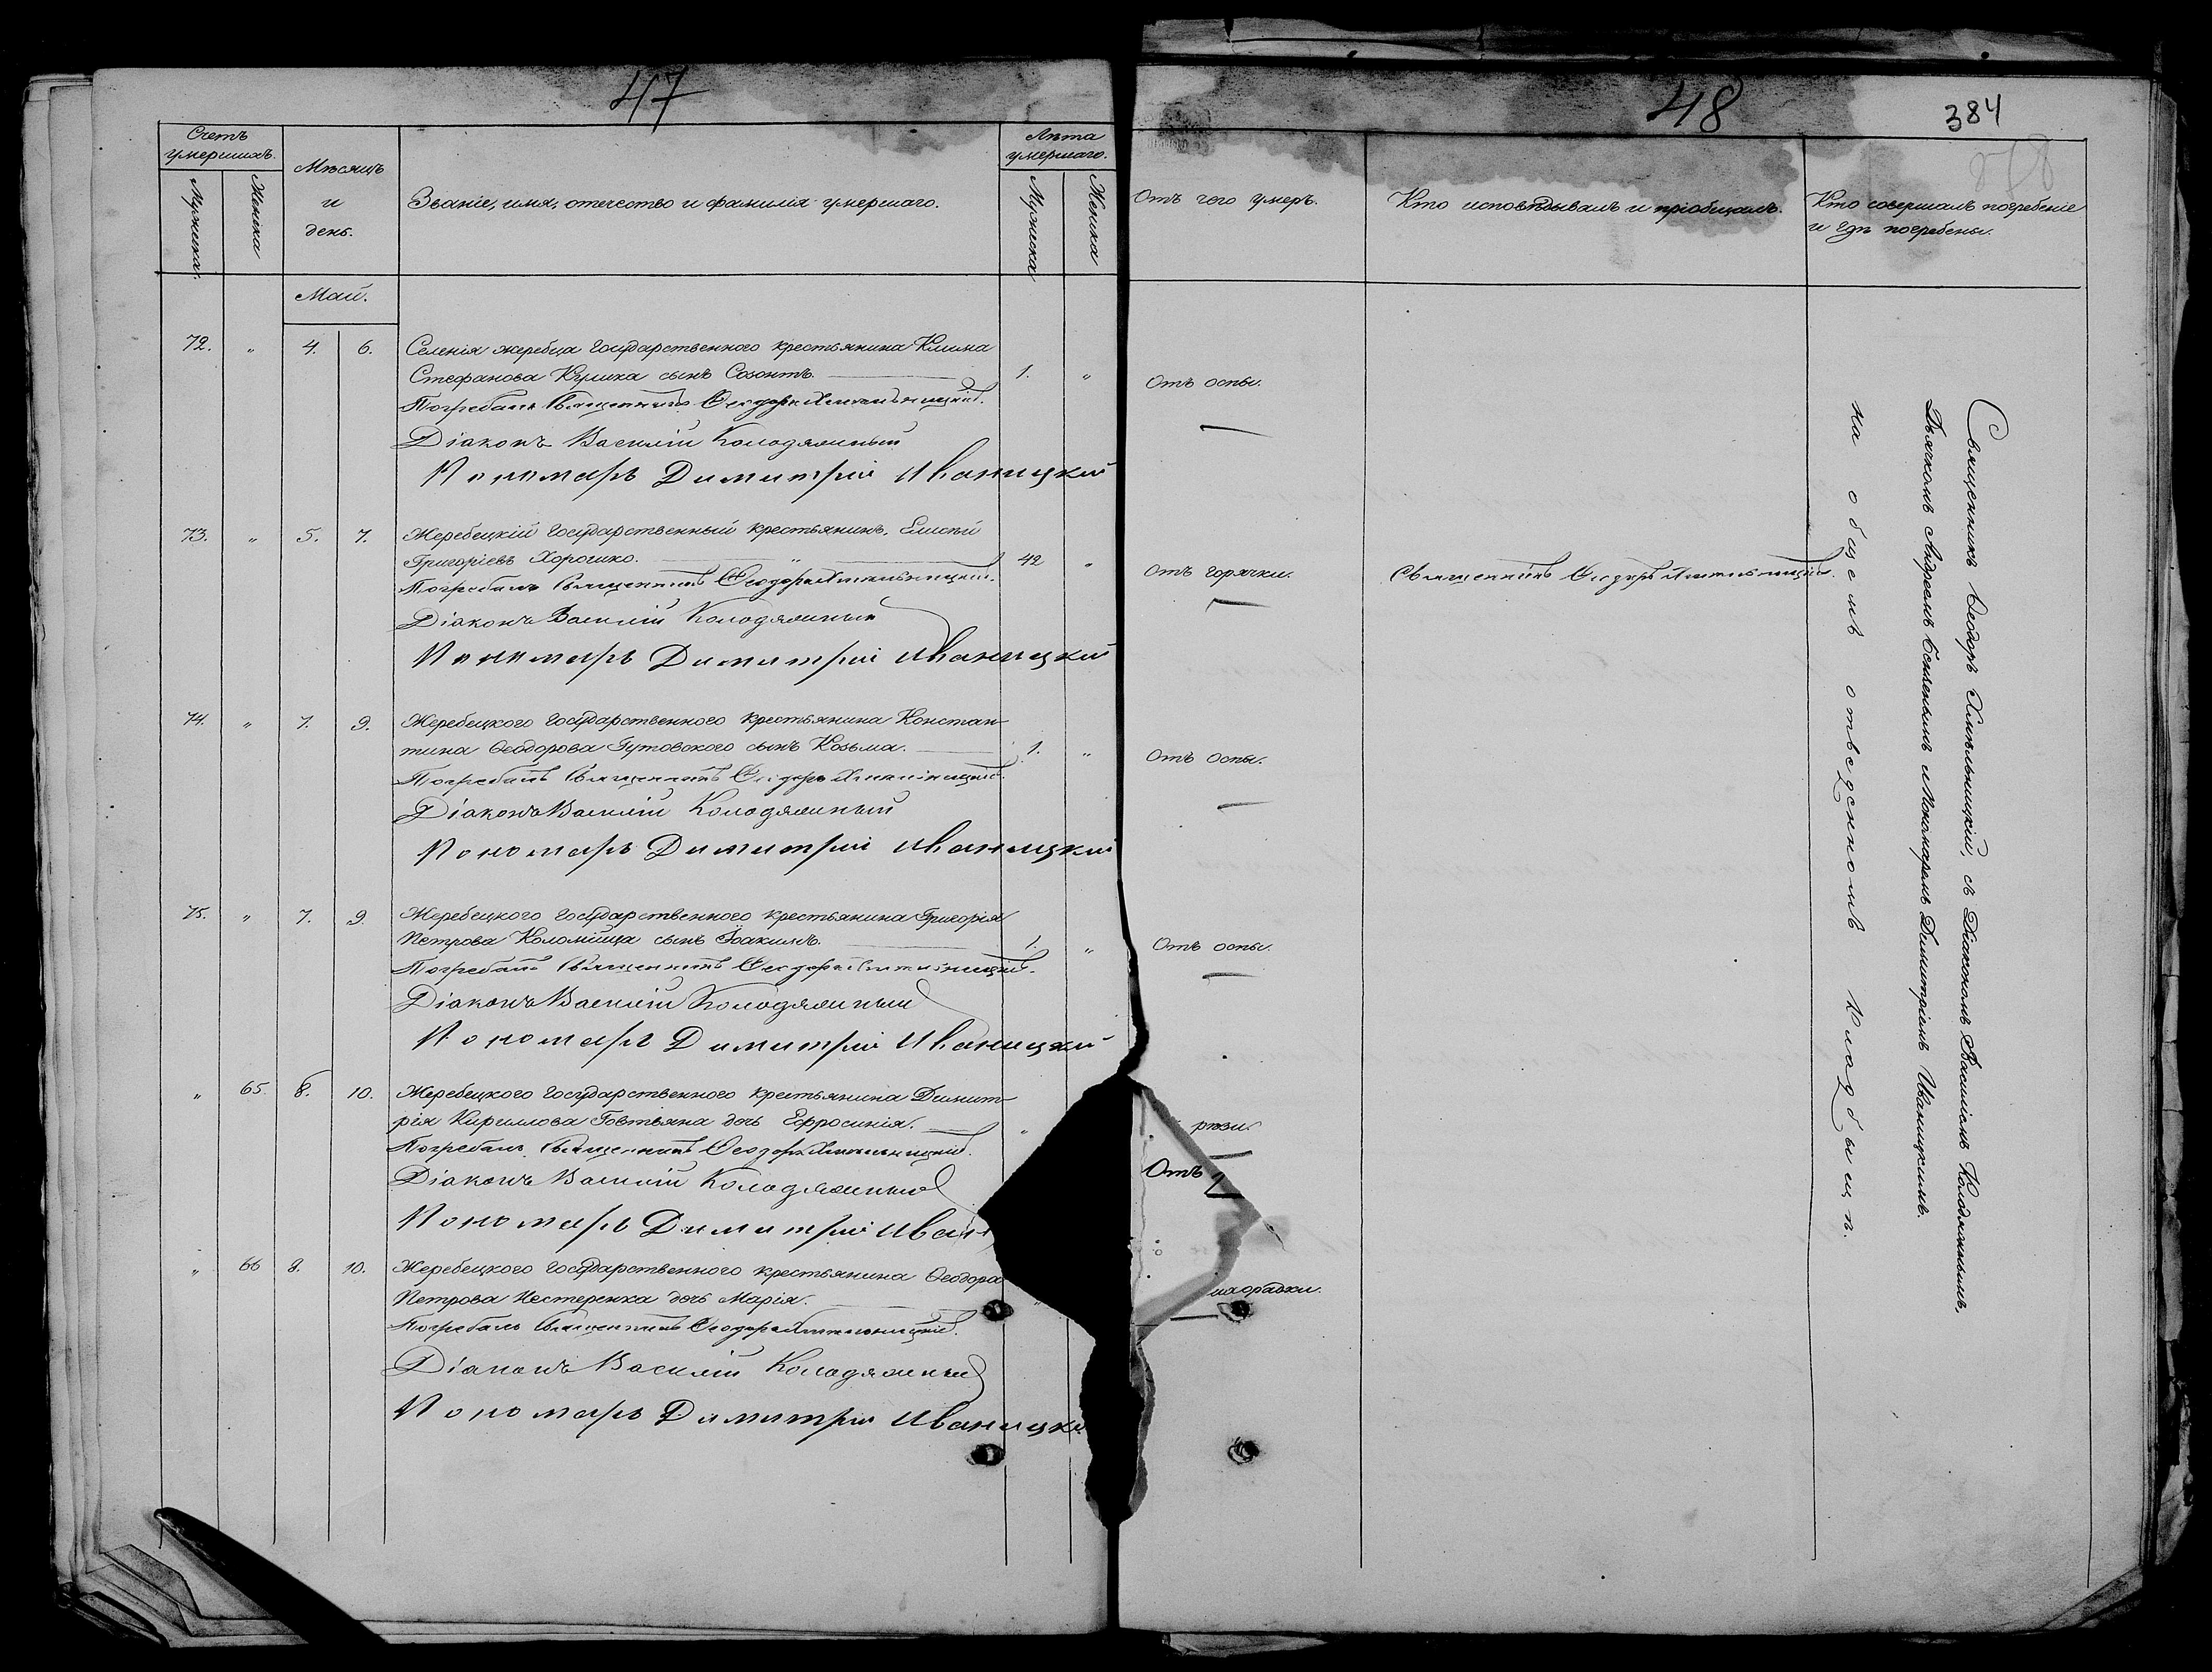 47
Счетъ
умершихъ.
Мужника.
Женска
Мѣсяцъ
и
день.
Званіе, имя, отечество и фамилія умершаго.
Лѣта
умершаго.
Мужеска
Женска
Май.
72. " 4. 6. Селенія жеребца государственного крестьянина Клима
Стефанова Кулика сынъ Созонтъ. 1. "
Погребалъ Священникъ Ѳеодоръ Хмельницкій.
Діаконъ Василій Колодяжный
Пономарь Димитрій Иваницкій
73. " 5. 7. Жеребецкій государственный крестьянинъ, Елисѣй
Григоріевъ Хорошко. " 42 "
Погребалъ Священникъ Ѳеодоръ Хмельницкій.
Діаконъ Василій Колодяжный
Пономарь Димитрій Иваницкій
74. " 7. 9. Жеребецкого государственного крестьянина Констан-
тина Ѳеодорова Гутовского сынъ Козьма. 1. "
Погребалъ Священникъ Ѳеодоръ Хмельницкій.
Діаконъ Василій Колодяжный
Пономарь Димитрій Иваницкій
75. " 7. 9 Жеребецкого государственного крестьянина Григорія
Петрова Коломійца сынъ Іоакимъ. 1. "
Погребалъ Священникъ Ѳеодоръ Хмельницкій.
Діаконъ Василій Колодяжный
Пономарь Димитрій Иваницкій
" 65. 8. 10. Жеребецкого государственного крестьянина Димит-
рія Кириллова Говтвяна дочь Ефросинія. "
Погребалъ Священникъ Ѳеодоръ Хмельницкій.
Діаконъ Василій Колодяжный
Пономарь Димитрій Иван
" 66 8. 10. Жеребецкого государственного крестьянина Ѳеодора
Петрова Нестеренка дочь Марія. "
Погребалъ Священникъ Ѳеодоръ Хмельницкій.
Діаконъ Василій Колодяжный
Пономарь Димитрій Иваницкі
48
384
Отъ чего умеръ.
Кто исповѣдывалъ и пріобщалъ.
Кто совершалъ погребеніе
и гдѣ погребены.
Отъ оспы.
Отъ горячки.
Священникъ Ѳеодоръ Хмельницкій.
Отъ оспы.
Отъ оспы.
рези.
Отъ
хорадки.
Священникъ Ѳеодоръ Хмельницкій, съ Діакономъ Василіемъ Колодяжнымъ,
Дьячкомъ Андреемъ и Пономаремъ Димитріемъ Иваницкимъ.
на общемъ отведенномъ кладбищѣ.